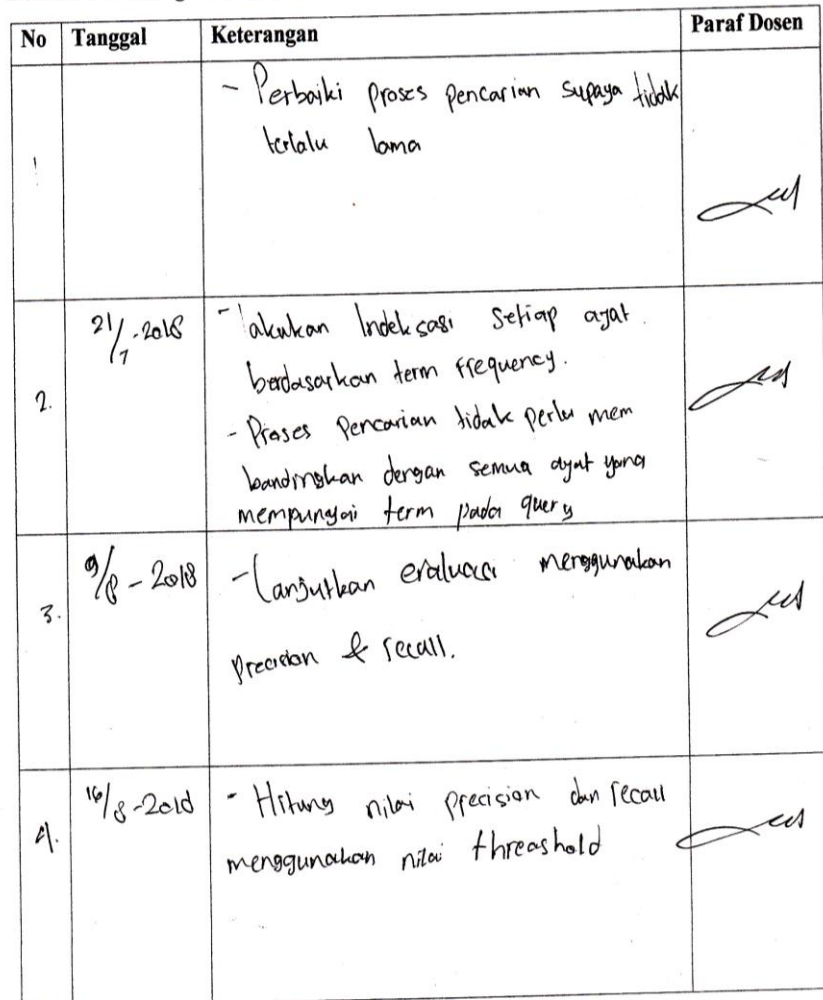 No Tanggal Keterangan Paraf Dosen
- Perbaiki proses pencarian supaya tidak
terlalu lama
1
21/7-2018 - lakukan Indeksasi setiap ayat.
berdasarkan term frequency.
2.
- Proses pencarian tidak perlu mem
bandingkan dengan semua ayat yang
mempunyai term pada query
9/8-2018 - Lanjutkan evaluasi menggunakan
3.
precision & recall.
16/8-2018 - Hitung nilai precision dan recall
4.
menggunakan nilai threashold